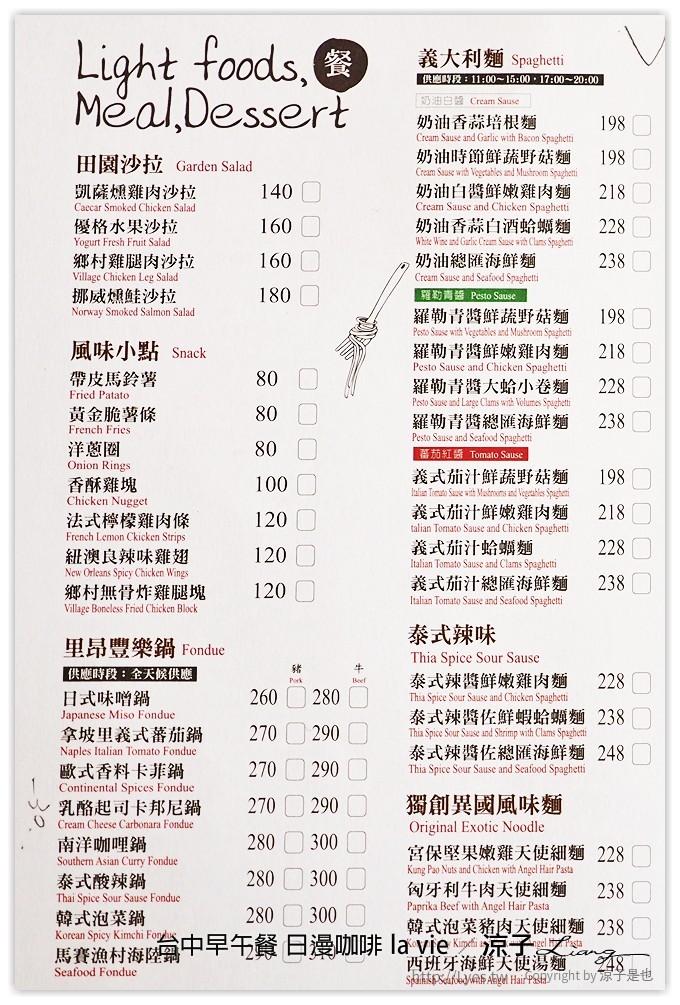 Light foods, 餐
Meal,Dessert
田園沙拉 Garden Salad
凱薩燻雞肉沙拉 140
Caecar Smoked Chicken Salad
優格水果沙拉 160
Yogurt Fresh Fruit Salad
鄉村雞腿肉沙拉 160
Village Chicken Leg Salad
挪威燻鮭沙拉 180
Norway Smoked Salmon Salad
風味小點 Snack
帶皮馬鈴薯 80
Fried Patato
黃金脆薯條 80
French Fries
洋蔥圈 80
Onion Rings
香酥雞塊 100
Chicken Nugget
法式檸檬雞肉條 120
French Lemon Ckicken Strips
紐澳良辣味雞翅 120
New Orleans Spicy Chicken Wings
鄉村無骨炸雞腿塊 120
Village Boneless Fried Chicken Block
里昂豐樂鍋 Fondue
供應時段：全天候供應
豬 牛
Pork Beef
日式味噌鍋 260 280
Japanese Miso Fondue
拿坡里義式蕃茄鍋 270 290
Naples Italian Tomato Fondue
歐式香料卡菲鍋 270 290
Continental Spices Fondue
乳酪起司卡邦尼鍋 270 290
Cream Cheese Carbonara Fondue
南洋咖哩鍋 280 300
Southern Asian Curry Fondue
泰式酸辣鍋 280 300
Thai Spice Sour Sause Fondue
韓式泡菜鍋 280 300
Korean Spicy Kimchi Fondue
馬賽漁村海陸鍋 290 310
Seafood Fondue
義大利麵 Spaghetti
供應時段：11:00～15:00，17:00～20:00
奶油白醬 Cream Sause
奶油香蒜培根麵 198
Cream Sause and Garlic with Bacon Spaghetti
奶油時節鮮蔬野菇麵 198
Cream Sause with Vegetables and Mushroom Spaghetti
奶油白醬鮮嫩雞肉麵 218
Cream Sause and Chicken Spaghetti
奶油香蒜白酒蛤蠣麵 228
White Wine and Garlic Cream Sause with Clams Spaghetti
奶油總匯海鮮麵 238
Cream Sause and Seafood Spaghetti
羅勒青醬 Pesto Sause
羅勒青醬鮮蔬野菇麵 198
Pesto Sause with Vegetables and Mushroom Spaghetti
羅勒青醬鮮嫩雞肉麵 218
Pesto Sause and Chicken Spaghetti
羅勒青醬大蛤小卷麵 228
Pesto Sause and Large Clams with Volumes Spaghetti
羅勒青醬總匯海鮮麵 238
Pesto Sause and Seafood Spaghetti
蕃茄紅醬 Tomato Sause
義式茄汁鮮蔬野菇麵 198
Italian Tomato Sause with Mushrooms and Vegetables Spaghetti
義式茄汁鮮嫩雞肉麵 218
talian Tomato Sause and Chicken Spaghetti
義式茄汁蛤蠣麵 228
Italian Tomato Sause and Clams Spaghetti
義式茄汁總匯海鮮麵 238
Italian Tomato Sause and Seafood Spaghetti
泰式辣味
Thia Spice Sour Sause
泰式辣醬鮮嫩雞肉麵 228
Thia Spice Sour Sause and Chicken Spaghetti
泰式辣醬佐鮮蝦蛤蠣麵 238
Thia Spice Sour Sause and Shrimp with Clams Spaghetti
泰式辣醬佐總匯海鮮麵 248
Thia Spice Sour Sause and Seafood Spaghetti
獨創異國風味麵
Original Exotic Noodle
宮保堅果嫩雞天使細麵 228
Kung Pao Nuts and Chicken with Angel Hair Pasta
匈牙利牛肉天使細麵 238
Paprika Beef with Angel Hair Pasta
韓式泡菜豬肉天使細麵 238
Korean Spicy Kimchi Pork with Angel Hair Pasta
西班牙海鮮天使湯麵 248
Spainish Seafood with Angel Hair Pasta
台中早午餐 日漫咖啡 la vie / 涼子
Liang
http://Lyes.tw Copyright by 涼子是也